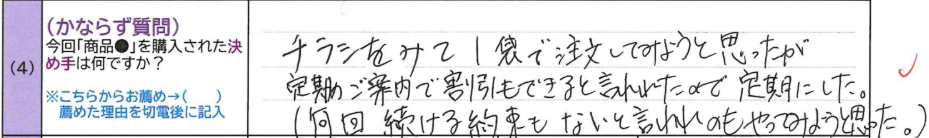 (かならず質問)
今回「商品●」を購入された決
め手は何ですか?
(4)
※こちらからお薦め→(　　)
薦めた理由を切電後に記入
チラシをみて1袋で注文してみようと思ったが
定期のご案内で割引もできると言われたので定期にした。
(何回 続ける約束も ないと言われ のもやってみようと思った。)